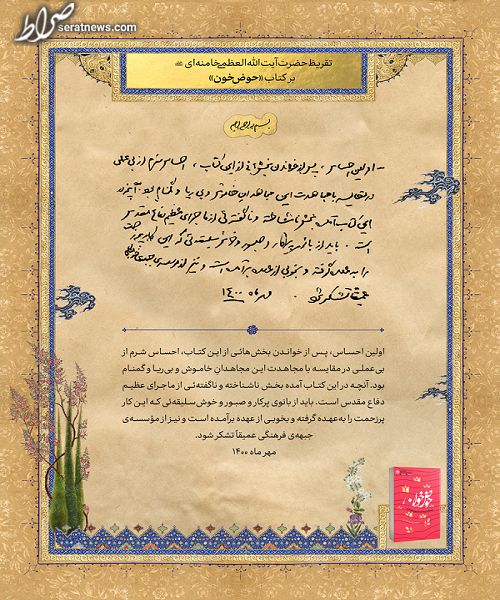 صراط
seratnews.com
تقریظ حضرت آیت‌الله‌العظمی خامنه‌ای
بر کتاب «حوض خون»
بسم الله الرحمن الرحیم
- اولین احساس، پس از خواندن بخش‌هائی از این کتاب، احساس شرم از بی‌عملی
در مقایسه با مجاهدت این مجاهدان خاموش و بی‌ریا و گمنام بود. آنچه در
این کتاب آمده بخش ناشناخته و ناگفته‌ئی از ماجرای عظیم دفاع مقدس
است. باید از بانوی پرکار و صبور و خوش سلیقه‌ئی که این کار پرزحمت
را به‌عهده گرفته و بخوبی از عهده برآمده است و نیز از مؤسسه‌ی جبهه‌ی فرهنگی
عمیقاً تشکر شود. مهر ماه ۱۴۰۰
اولین احساس، پس از خواندن بخش‌هائی از این کتاب، احساس شرم از
بی‌عملی در مقایسه با مجاهدت این مجاهدانِ خاموش و بی‌ریا و گمنام
بود. آنچه در این کتاب آمده بخش ناشناخته و ناگفته‌ئی از ماجرای عظیم
دفاع مقدس است. باید از بانوی پرکار و صبور و خوش سلیقه‌ئی که این کار
پرزحمت را به‌عهده گرفته و بخوبی از عهده برآمده است و نیز از مؤسسه‌ی
جبهه‌ی فرهنگی عمیقاً تشکر شود.
مهر ماه ۱۴۰۰
حوض خون